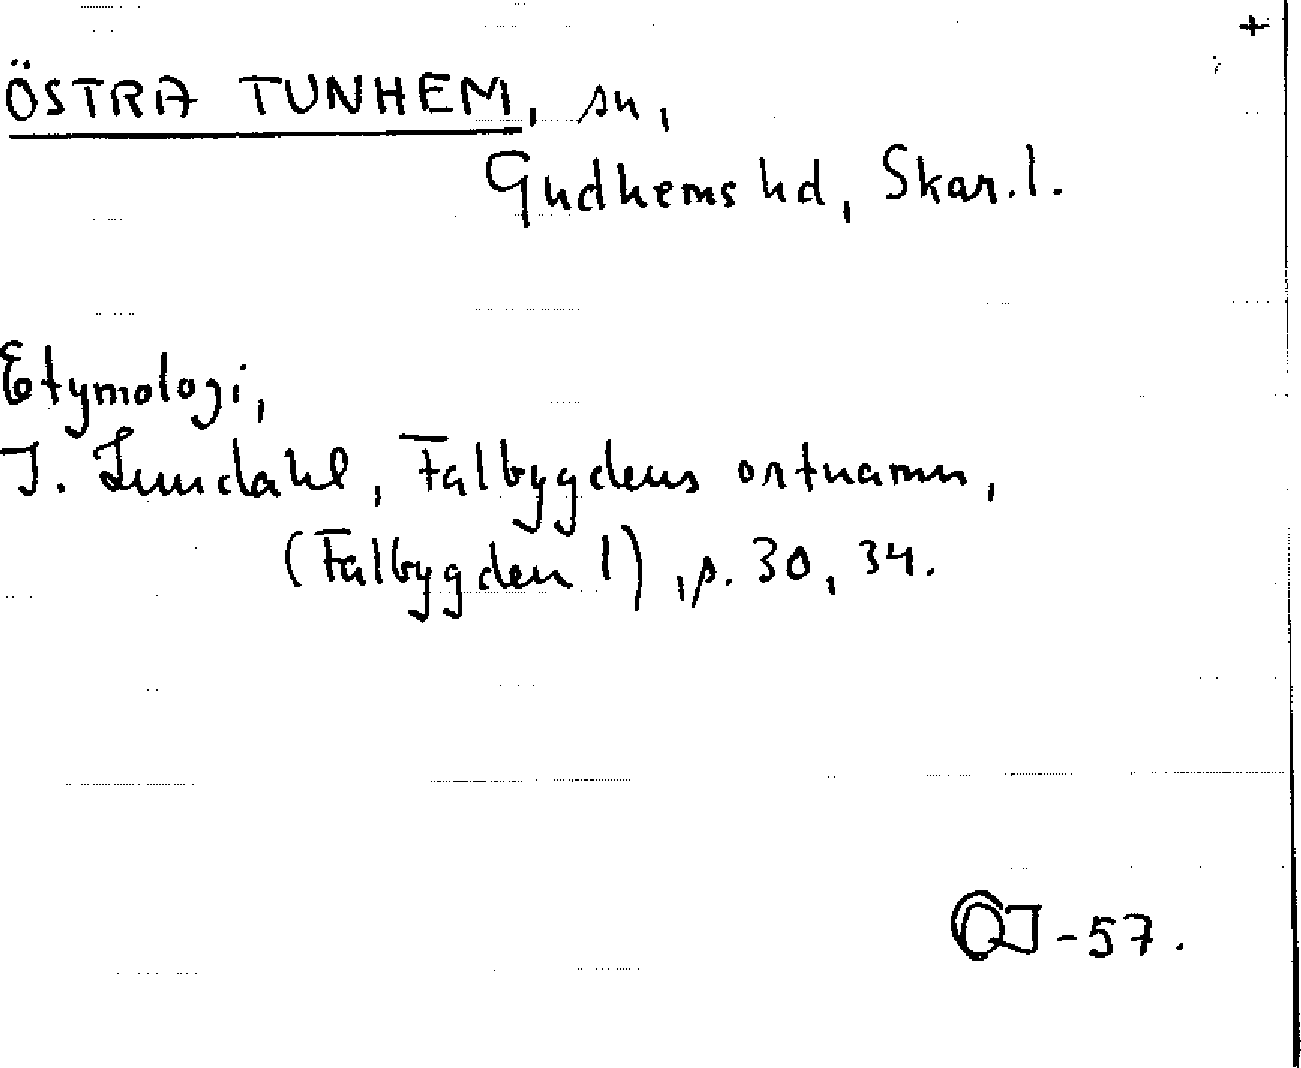 +
ÖSTRA TUNHEM, sn,
Gudhems hd, Skar.l.
Etymologi,
I. Lundahl, Falbygdens ortnamn,
(Falbygden 1), p. 30, 34.
-57.